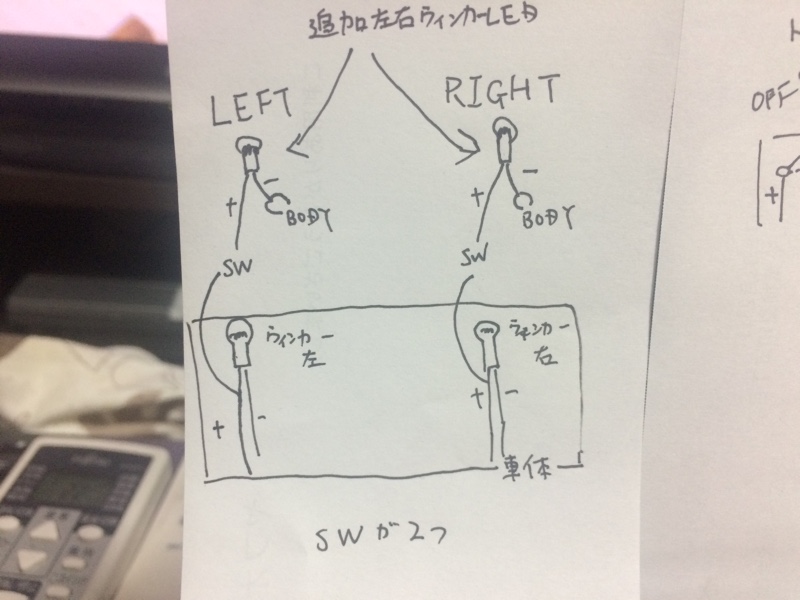 追加左右ウィンカーLED
LEFT
RIGHT
-
+
BODY
SW
-
+
BODY
SW
ウィンカー
左
+
-
ウィンカー
右
+
-
車体
SWが2つ
OFF
+